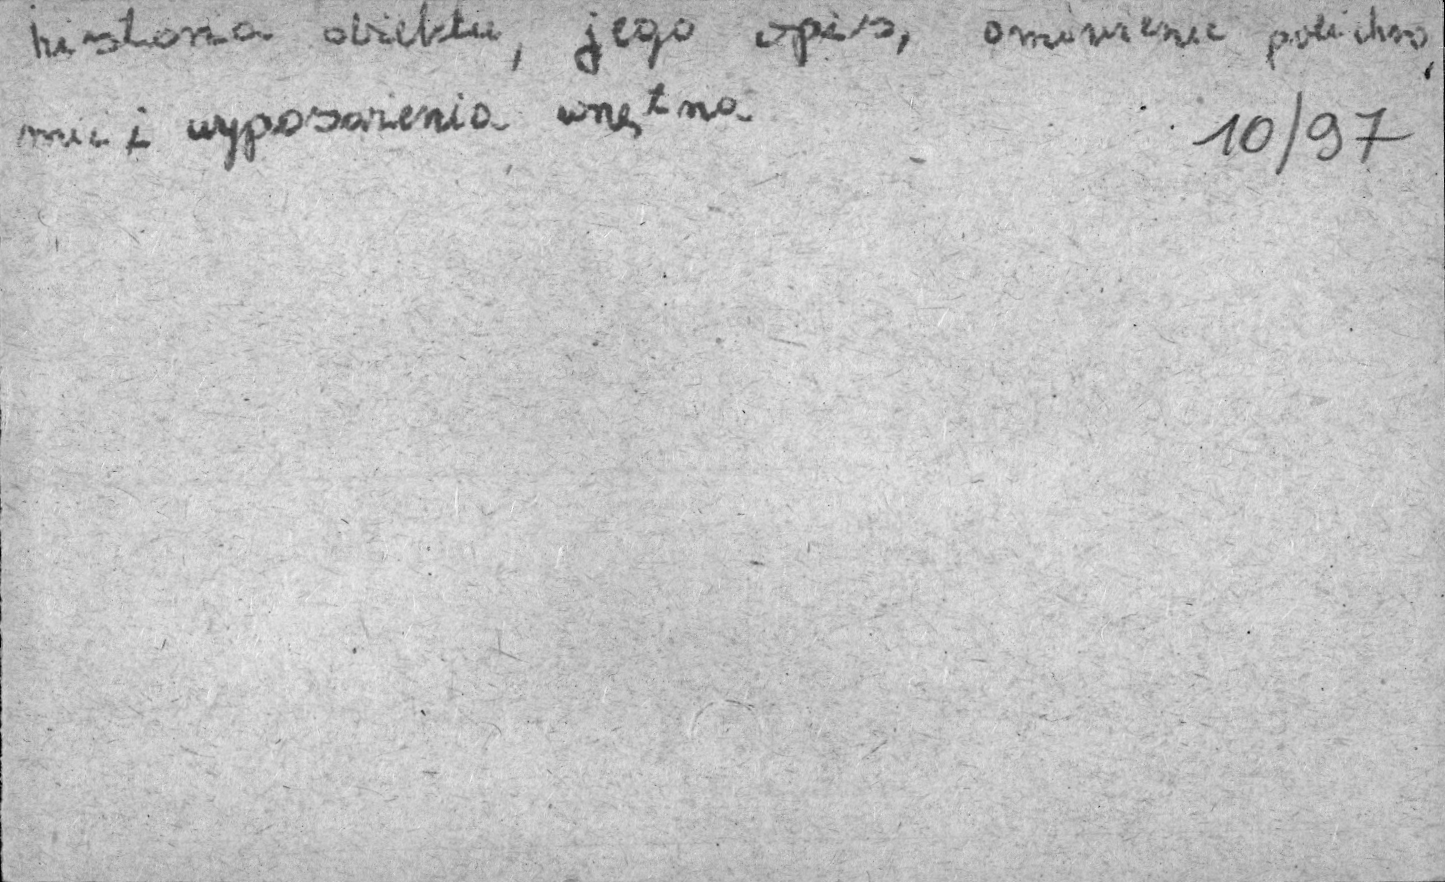 historia obiektu, jego opis, omówienie polichro,
mii i wyposażenia wnętrza
10/97